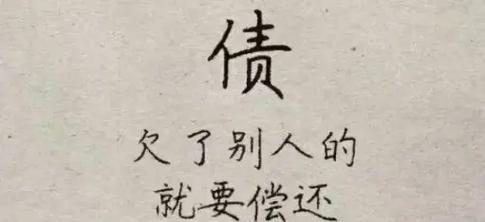 债
欠了别人的
就要偿还